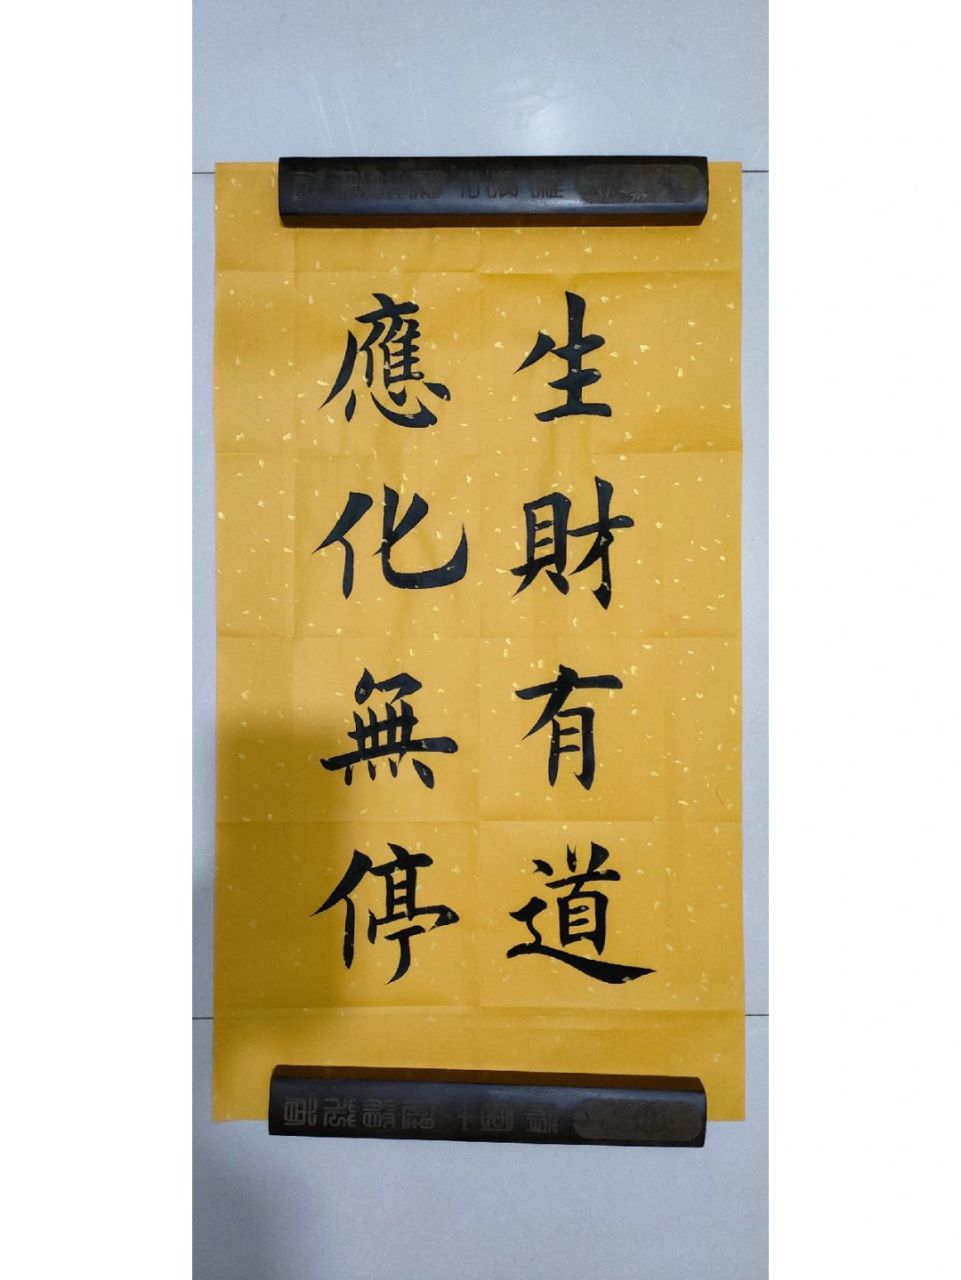 生財有道
應化無停